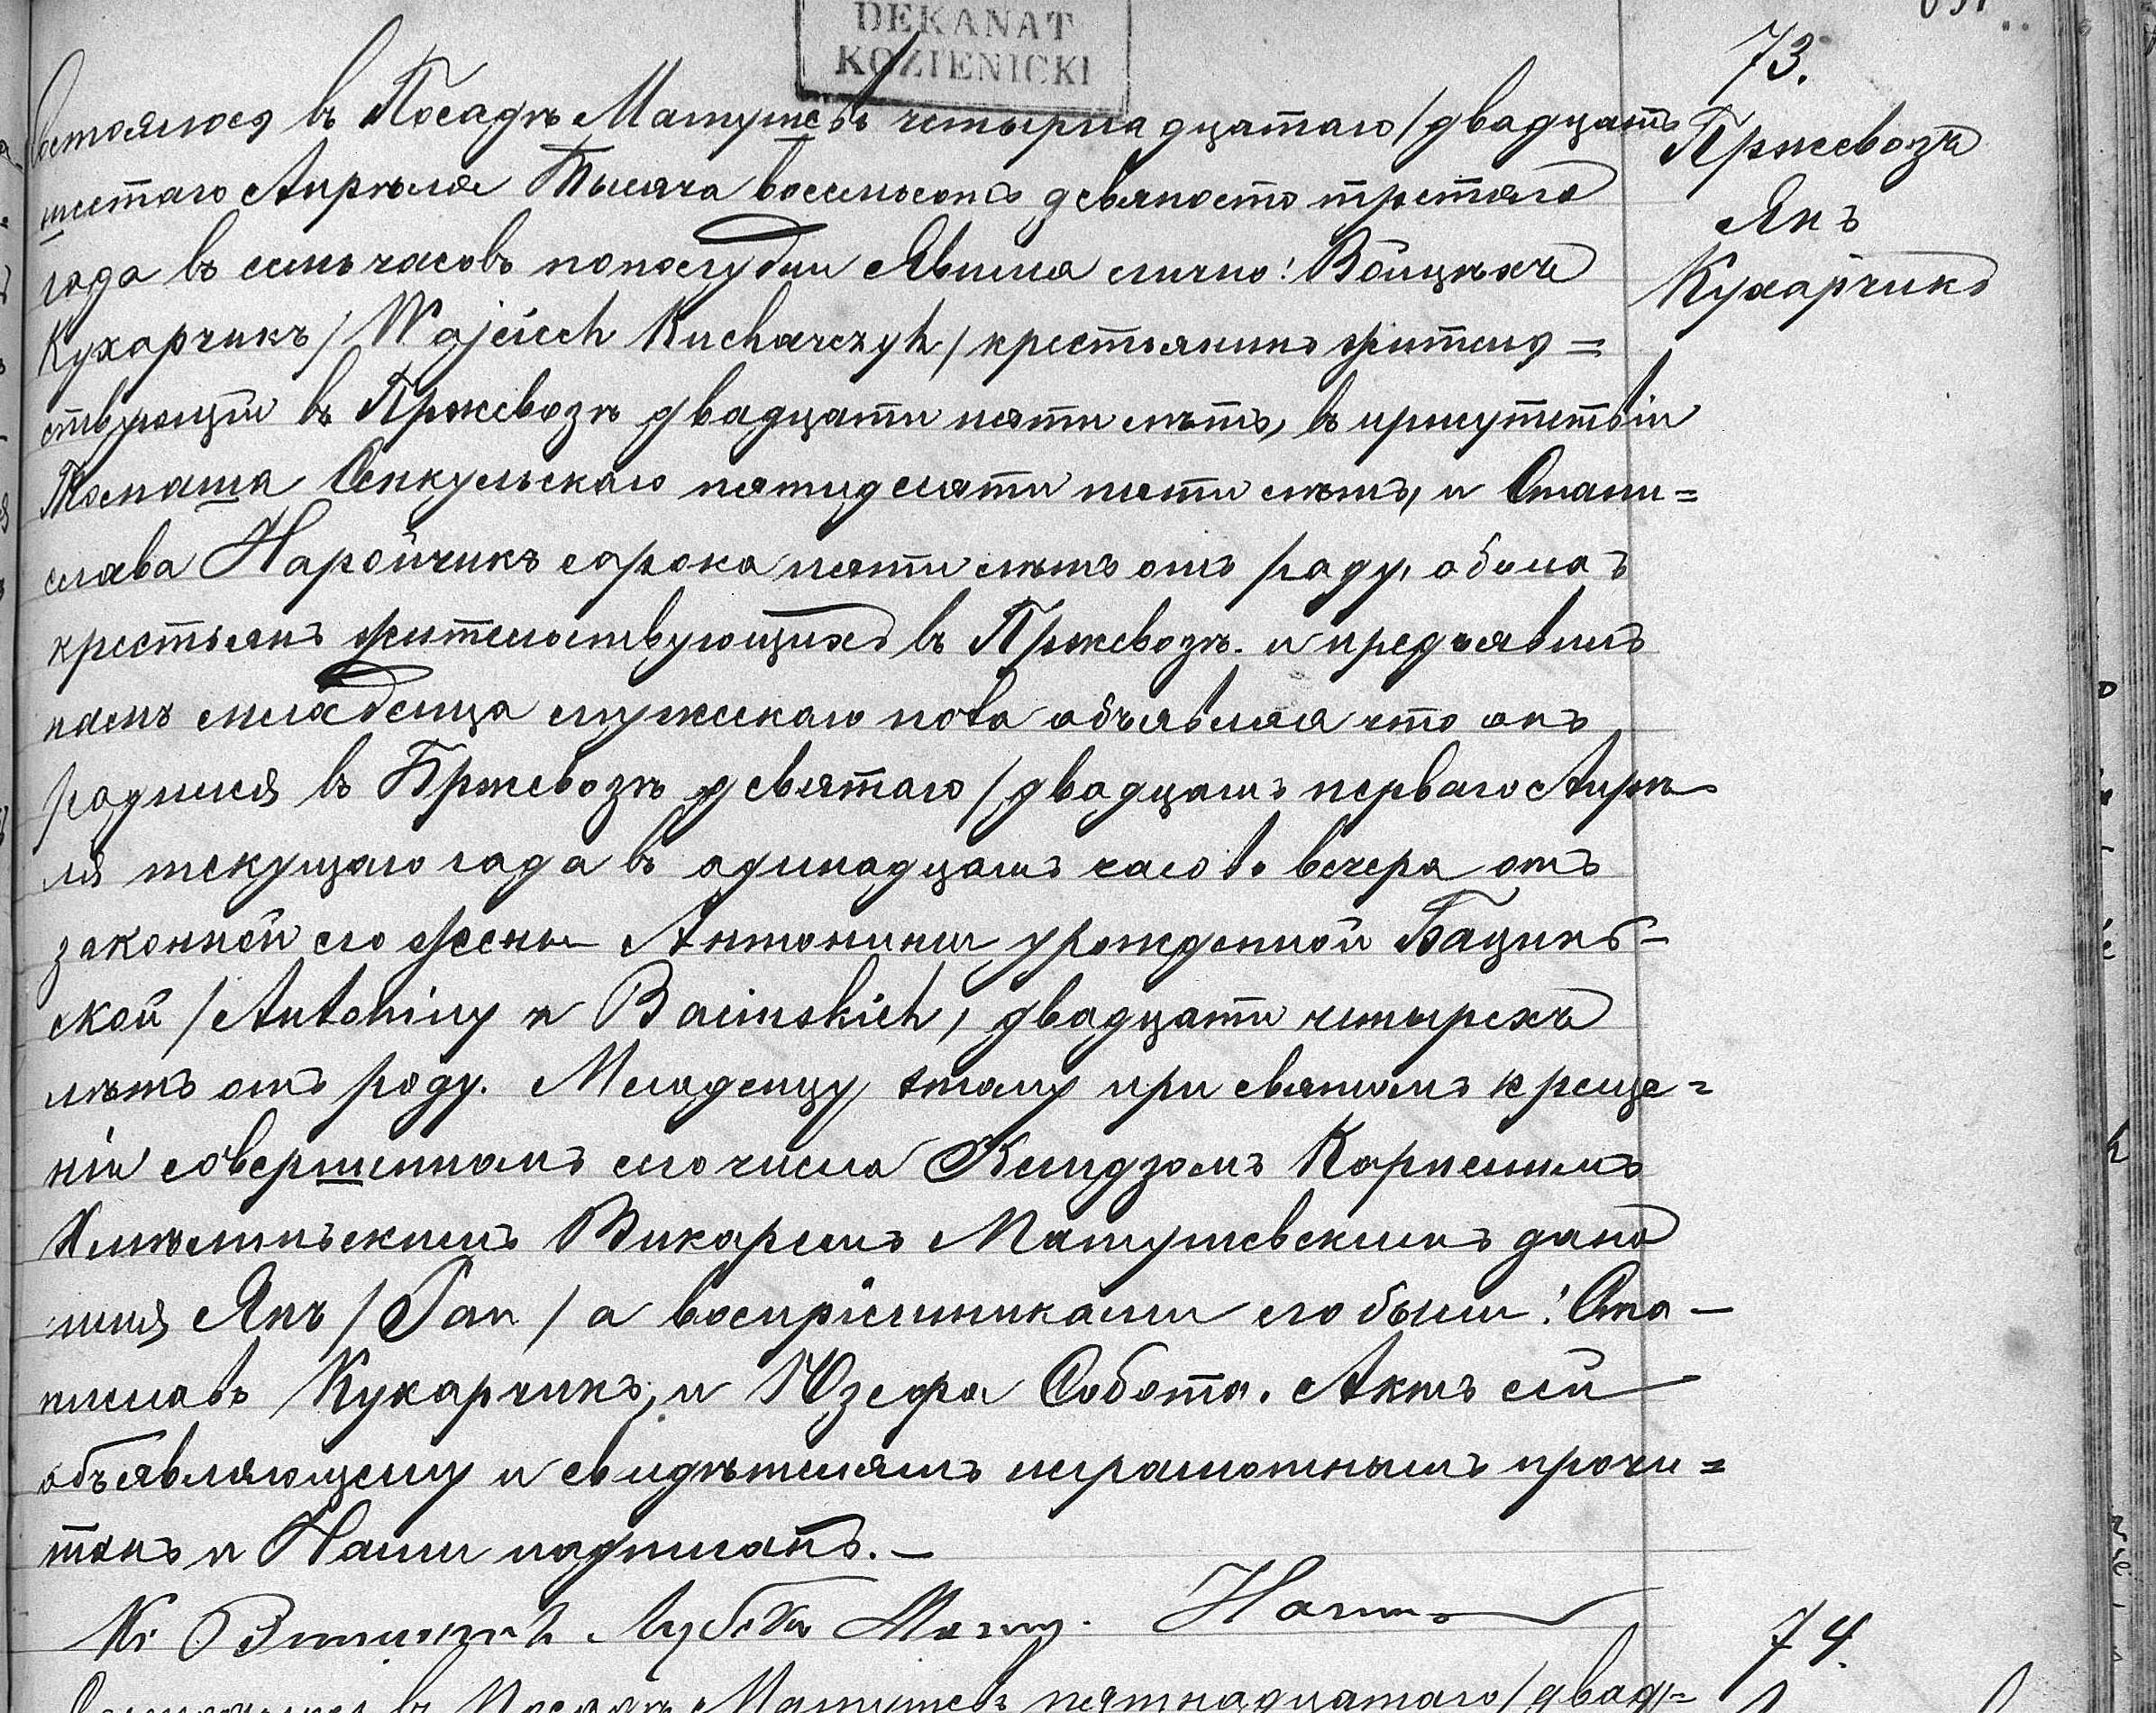 DEKANAT
KOZIENICKI
73.
Пржевозъ
Янъ
Кухарчикъ
Состоялося въ Посадѣ Магнушевѣ четырнадцатаго / двадцать
шестаго Апрѣля Тысяча восемьсотъ девяносто третяго
года въ семь часовъ пополудни Явился лично: Войцѣхъ
Кухарчикъ / Wojciech Kucharczyk / крестьянинъ житель=
ствующій въ Пржевозѣ двадцати пяти лѣтъ, въ присутствіи
Томаша Секкульскаго пятидесяти пяти лѣтъ, и Стани=
слава Наройчикъ сорока пяти лѣтъ отъ роду, обоихъ
крестьянъ жительствующихъ въ Пржевозѣ. и предъявилъ
намъ младенца мужескаго пола объявляя что онъ
родился въ Пржевозѣ девятаго / двадцать перваго Апрѣ
ля текущаго года въ одинадцать часовъ вечера отъ
законной его жены Антонины урожденной Бацинь-
ской / Antoniny z Bacinskich, двадцати четырехъ
лѣтъ отъ роду. Младенцу этому при святомъ креще=
ніи совершенномъ сего числа Ксендзомъ
Викаремъ Магнушевскимъ дано
имя Янъ / Jan / а воспріемниками его были: Ста-
ниславъ Кухарчикъ, и Юзефа Собота. Актъ сей
объявляющему и свидѣтелямъ неграмотнымъ прочи=
танъ и Нами подписанъ. –
Кс.
74.
Состоялося въ Посадѣ Магнушевѣ пятнадцатаго / двад=